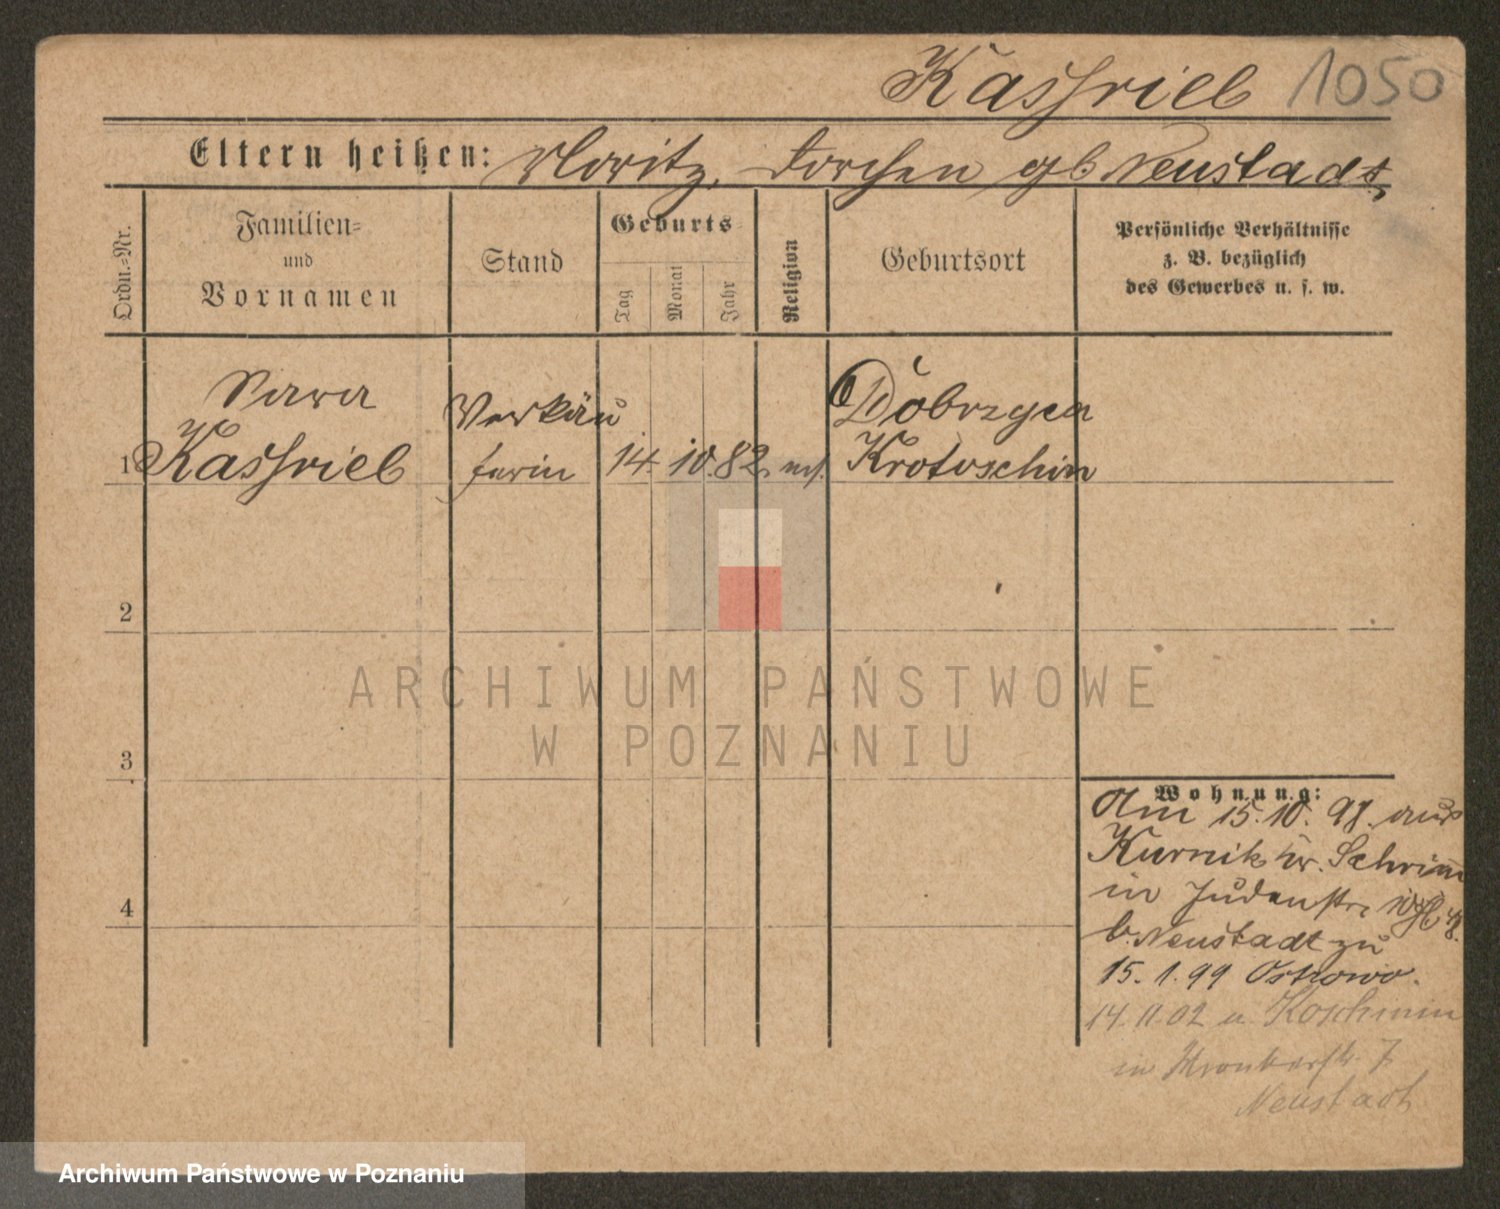 Kassriel 1050
Eltern heißen: Moritz, Dorchen gb Neustadt,
Ordn.-Nr.
Familien-
und
Vornamen
Stand
Geburts
Tag
Monat
Jahr
Religion
Geburtsort
Persönliche Verhältnisse
z. B. bezüglich
des Gewerbes u. s. w.
Sara Verkäu Dobrzyca
1 Kassriel ferin 14. 10. 82. ms. Krotoschin
2
3
4
Wohnung:
Am 15.10.98. aus
Kurnik Kr. Schrimm
in Judenstr.
b. Neustadt zu
15.1.99 Ostrowo.
14.11.02 a. Koschmin
in Kronkerstr. 7
Neustadt
ARCHIWUM PAŃSTWOWE
W POZNANIU
Archiwum Państwowe w Poznaniu